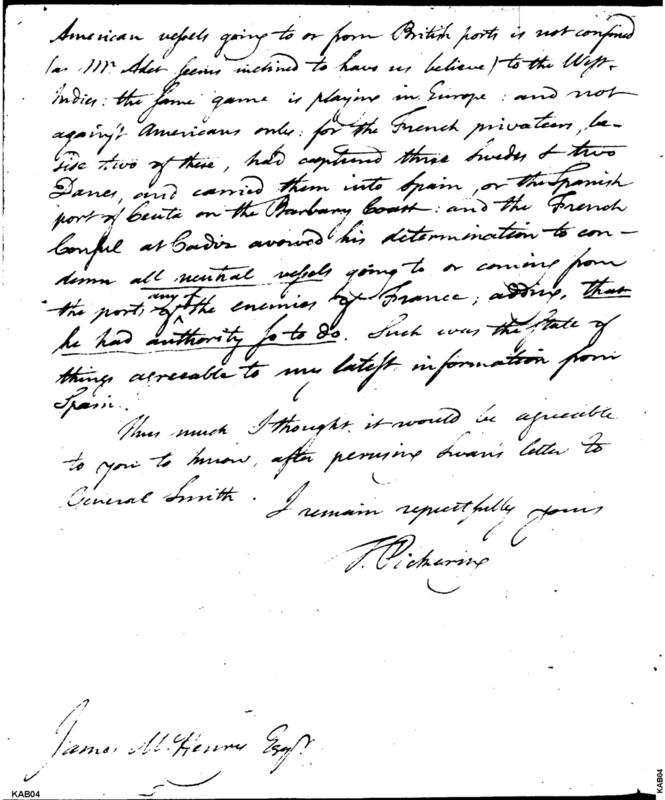 American vessels going to or from British ports is not confined
(as Mr. Adet seems inclined to have us believe) to the West-
Indies: the same game is playing in Europe: and not
against Americans only: for the French privateers, be-
side two of these, had captured three Swedes & two
Danes, and carried them into Spain, or the Spanish
port of Ceuta on the Barbary Coast: and the French
Consul at Cadiz avowed his determination to con-
demn all neutral vessels going to or coming from
the ports of any of the enemies of France; adding, that
he had authority so to do. Such was the state of
things agreeable to my latest information from
Spain.
Thus much I thought it would be agreeable
to you to know, after perusing Swan's letter to
General Smith.
I remain respectfully yours
T. Pickering
James McHenry Esqr.
KAB04
KAB04